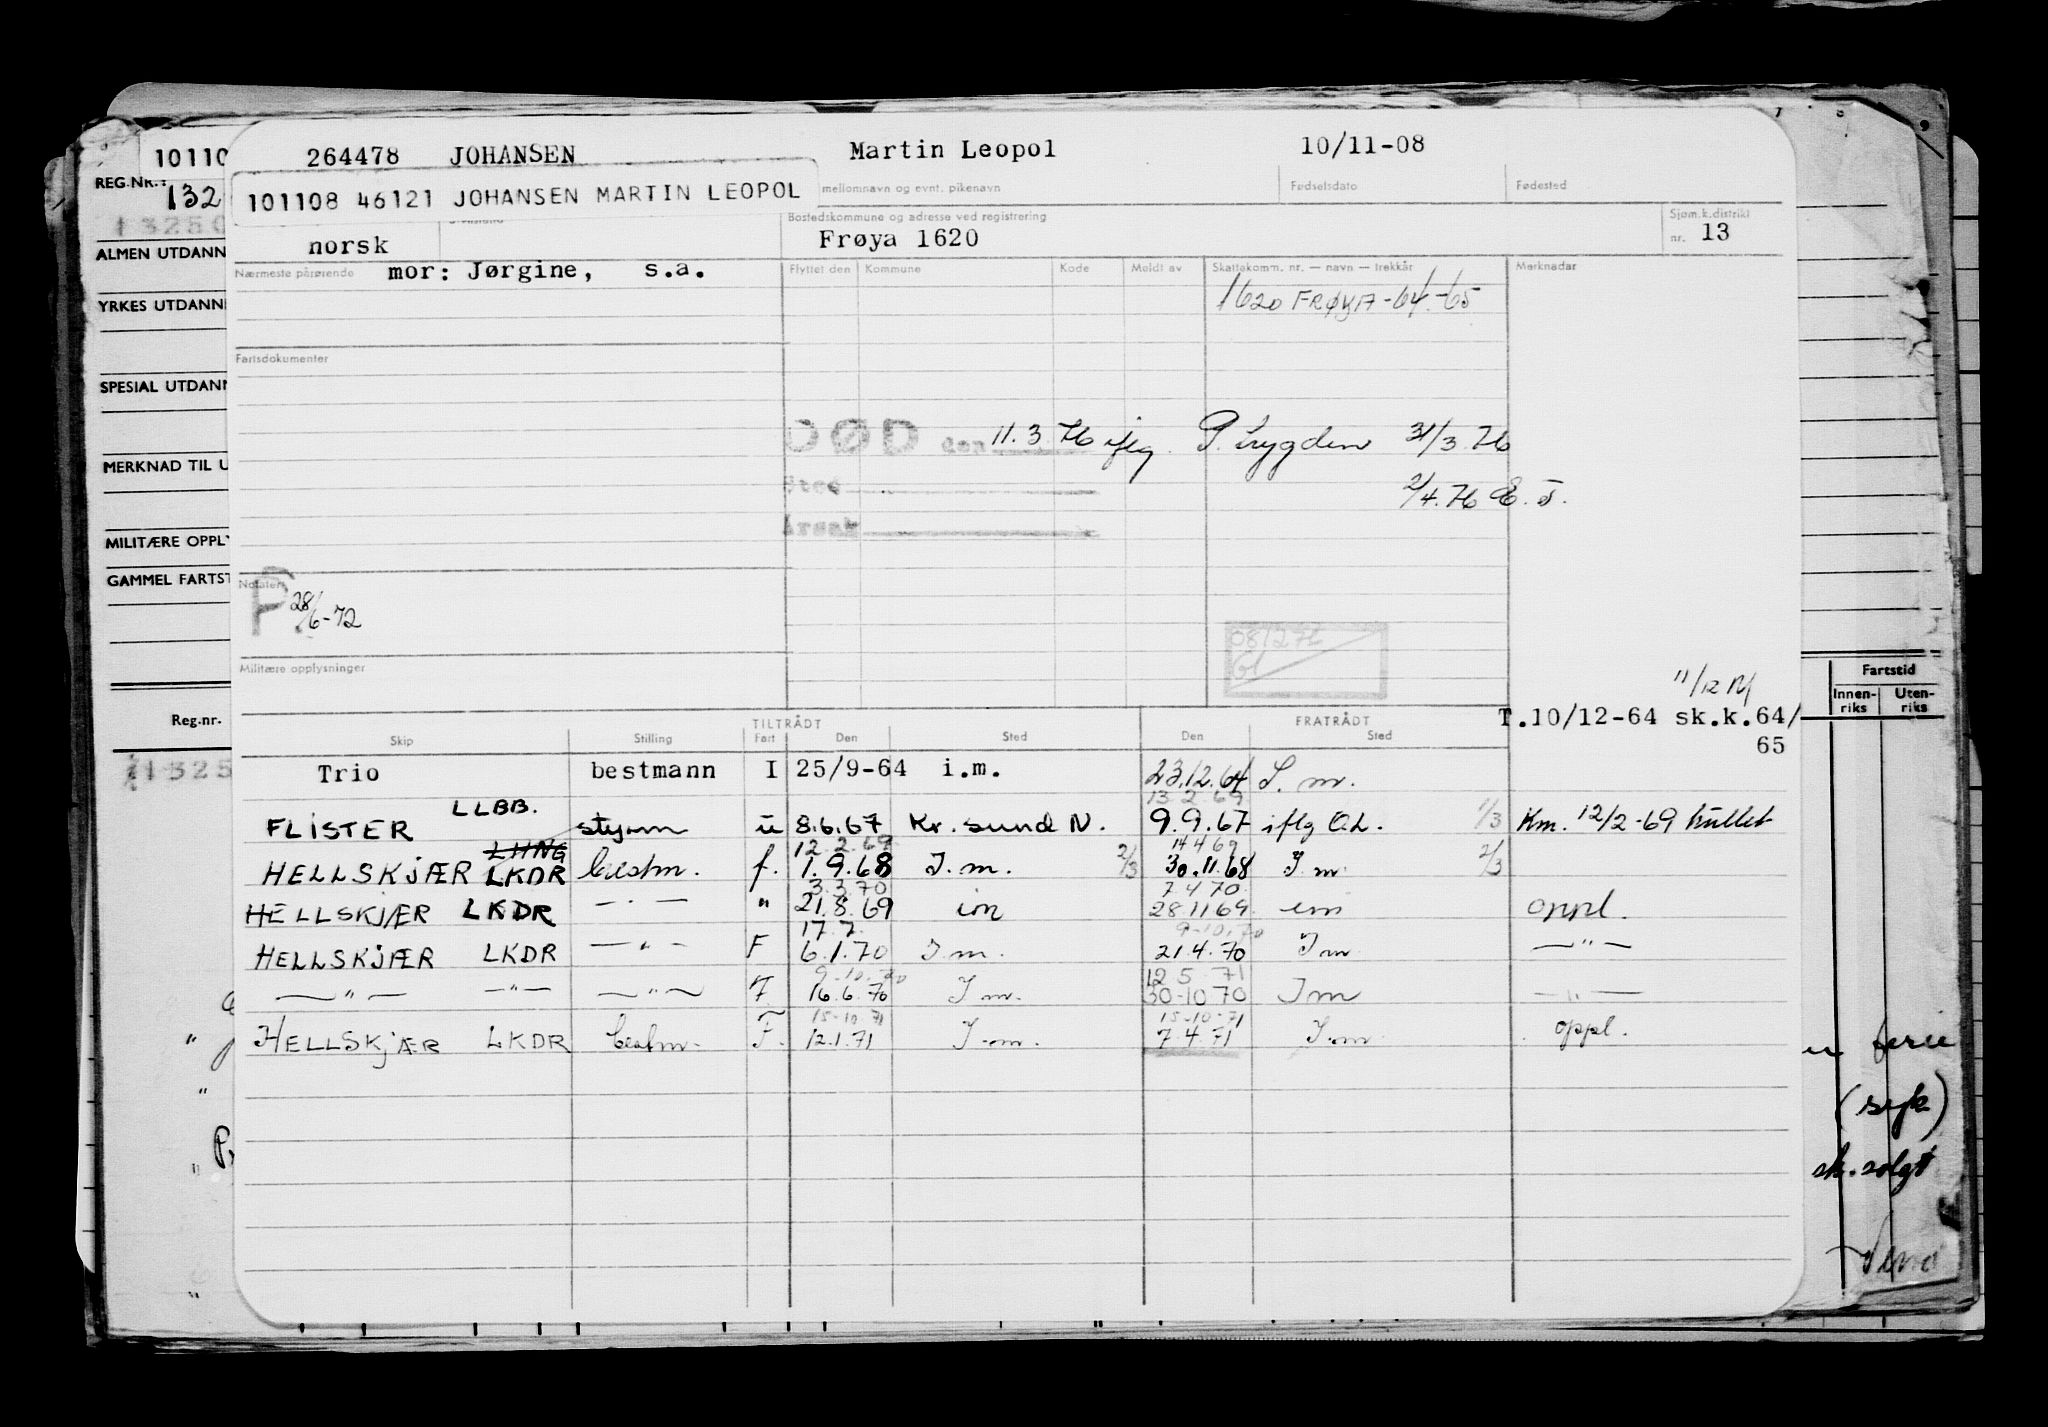 10110 264478 JOHANSEN Martin Leopol 10/11-08
REG.NR.:
132
101108 46121 JOHANSEN MARTIN LEOPOL
mellomnavn og evnt. pikenavn Fødselsdato Fødested
13250
Bostedskommune og adresse ved registrering Sjøm.k.distrikt
norsk Frøya 1620 nr. 13
ALMEN UTDANN
Nærmeste pårørende mor: Jørgine, s.a. Flyttet den Kommune Kode Meldt av Skattekomm. nr. — navn — trekkår Merknader
1620 FRØYA -64-65
YRKES UTDANN
Fartsdokumenter
SPESIAL UTDANN
DØD den 11.3.76 iflg. P. trygden 31/3.76
MERKNAD TIL U
Sted 2/4.76 E.T.
Årsak
MILITÆRE OPPLY
GAMMEL FARTST
Notater
P. 28/6-72
Militære opplysninger
Fartstid
Innen-riks Uten-riks
11/12
Reg.nr. TILTRÅDT FRATRÅDT T.10/12-64 sk.k.64/
Skip Stilling Fart Den Sted Den Sted 65
1325 Trio bestmann I 25/9-64 i.m. 23.12.64 I.m.
13 2 69
FLISTER LLBB. styrm u 8.6.67 Kr.sund N. 9.9.67 iflg OL. 1/3 Km. 12/2-69 kullet
12.2.69 14 4 69
HELLSKJÆR LHNG LKDR bestm. f. 1.9.68 I.m. 2/3 30.11.68 I.m. 2/3
3.3.70 7 4 70
HELLSKJÆR LKDR — " — " 21.8.69 im 28 11 69 im oppl.
17.7. 9-10.70
HELLSKJÆR LKDR — " — F 6.1.70 I.m. 21.4.70 I m — " —
9-10.70 12 5 71
— " — — " — — " — F. 16.6.70 I m. 30-10 70 I m — " —
15-10-71 15-10-71
HELLSKJÆR LKDR bestm. F. 12.1.71 I.m. 7.4.71 I.m. oppl.
ferie
(syk)
sk. solgt